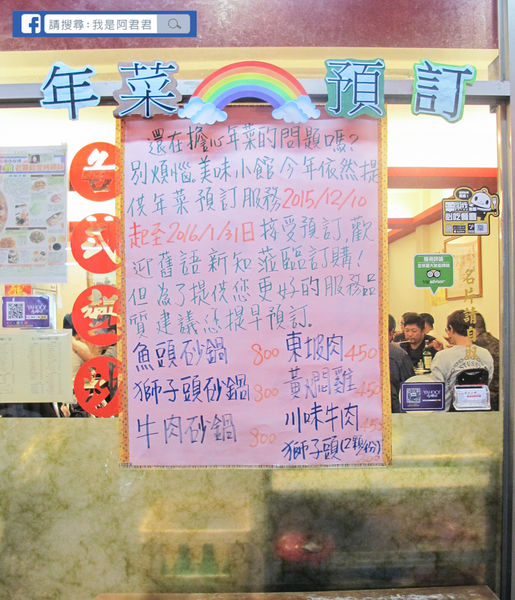 請搜尋：我是阿君君
年菜預訂
還在擔心年菜的問題嗎?
別煩惱。美味小館今年依然提
供年菜預訂服務2015/12/10
起至2016/1/31日接受預訂,歡
迎舊語新知蒞臨訂購!
但為了提供您更好的服務品
質建議您提早預訂.
魚頭砂鍋 800
東坡肉 450
獅子頭砂鍋 800
黃燜雞 450
牛肉砂鍋 800
川味牛肉 450
獅子頭(2顆/份)
各式熱炒
名片請自取
YAHOO!
YAHOO!